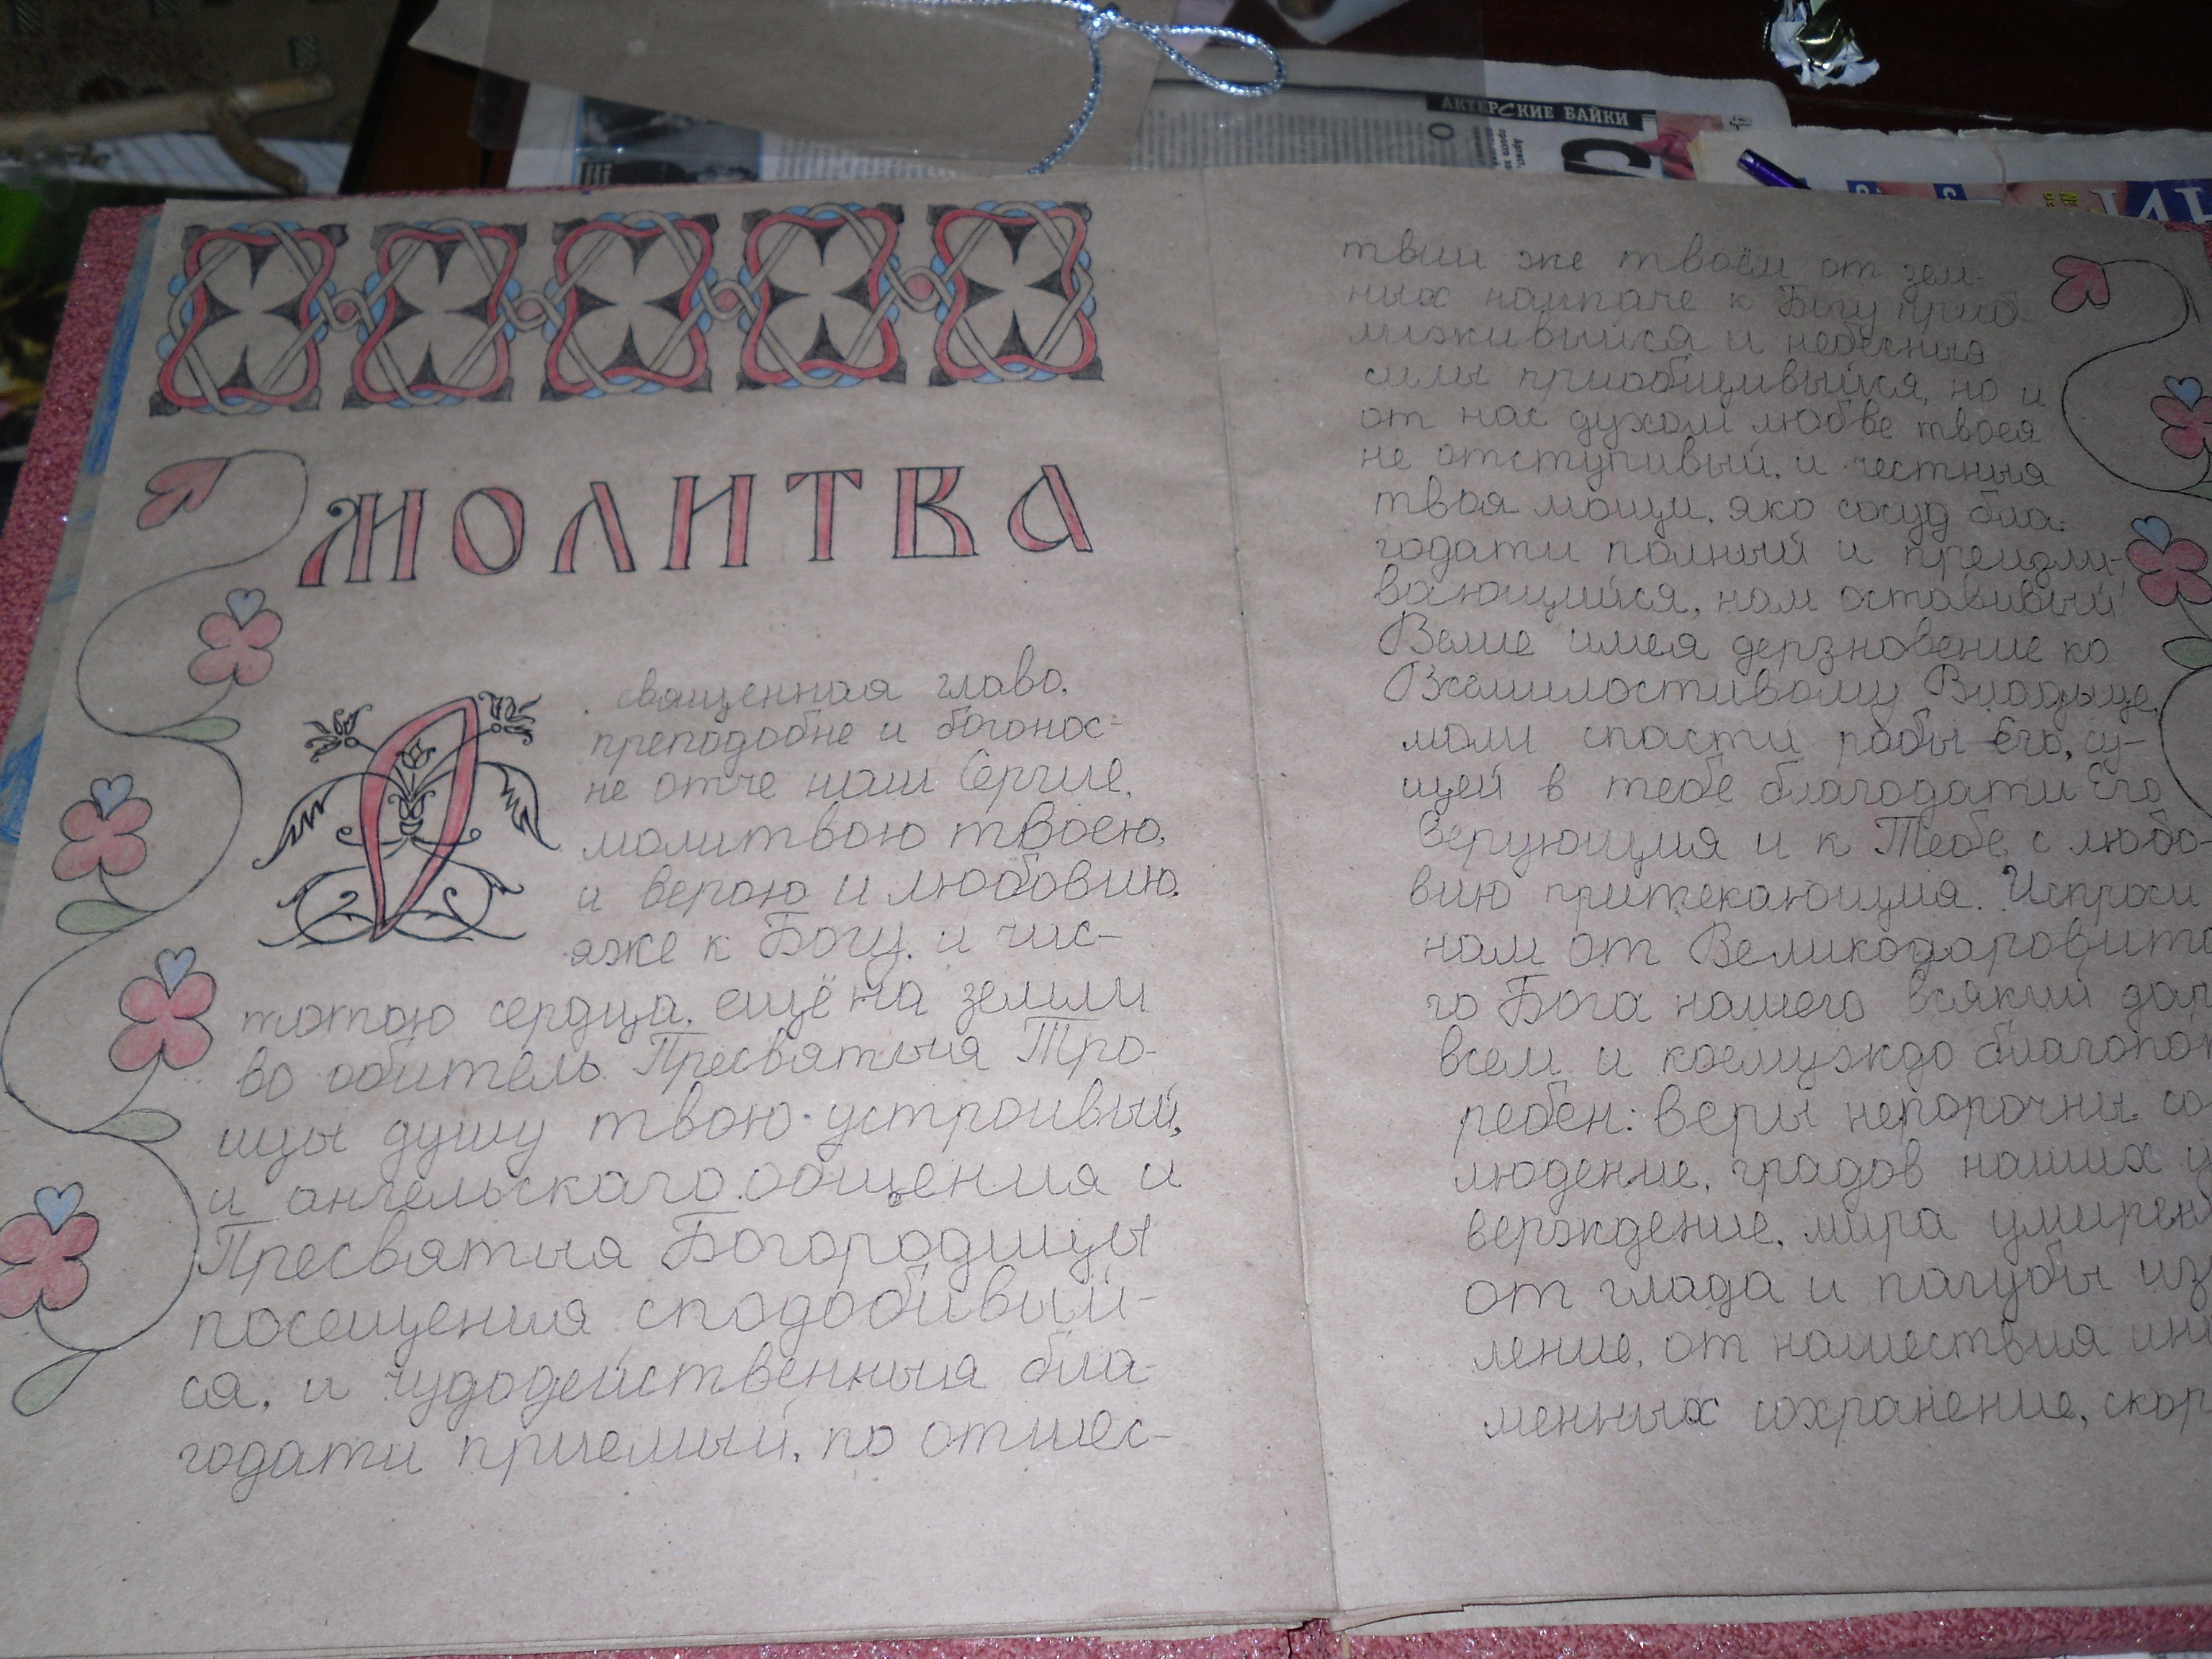 АКТЕРСКИЕ БАЙКИ
МОЛИТВА
О священная главо,
преподобне и богонос-
не отче наш Сергие,
молитвою твоею,
и верою и любовию,
яже к Богу, и чис-
тотою сердца, ещё на земли
во обитель Пресвятыя Тро-
ицы душу твою устроивый,
и ангельскаго общения и
Пресвятыя Богородицы
посещения сподобивый-
ся, и чудодейственныя бла-
годати приемый, по отшес-
твии же твоём от зем-
ных наипаче к Богу приб-
лижившийся и небесныя
силы приобщивыйся, но и
от нас духом любве твоея
не отступивый, и честныя
твоя мощи, яко сосуд бла-
годати полный и преизли-
вающийся, нам оставивый!
Велие имея дерзновение ко
Всемилостивому Владыце,
моли спасти рабы Его, су-
щей в тебе благодати Его
верующия и к Тебе с любо-
вию притекающия. Испроси
нам от Великодаровито
го Бога нашего всякий дар
всем и коемуждо благопот
ребен: веры непорочны со
людение, градов наших у
верждение, мира умирен
от глада и пагубы изб
ление, от нашествия ино
менных сохранение, скор